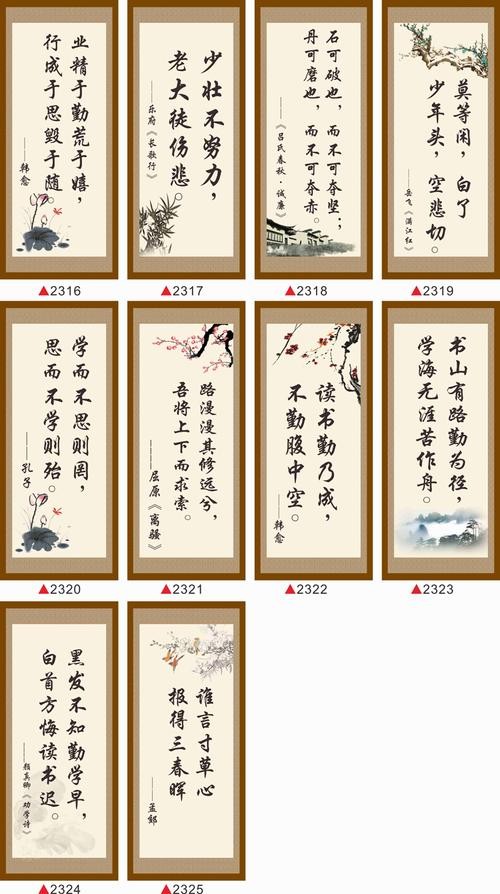 业精于勤荒于嬉，
行成于思毁于随。
——韩愈
▲2316
少壮不努力，
老大徒伤悲。
——乐府《长歌行》
▲2317
石可破也，而不可夺坚；
丹可磨也，而不可夺赤。
——《吕氏春秋·诚廉》
▲2318
莫等闲，白了
少年头，空悲切。
——岳飞《满江红》
▲2319
学而不思则罔，
思而不学则殆。
——孔子
▲2320
路漫漫其修远兮，
吾将上下而求索。
——屈原《离骚》
▲2321
读书勤乃成，
不勤腹中空。
——韩愈
▲2322
书山有路勤为径，
学海无涯苦作舟。
▲2323
黑发不知勤学早，
白首方悔读书迟。
——颜真卿《劝学诗》
▲2324
谁言寸草心
报得三春晖
——孟郊
▲2325